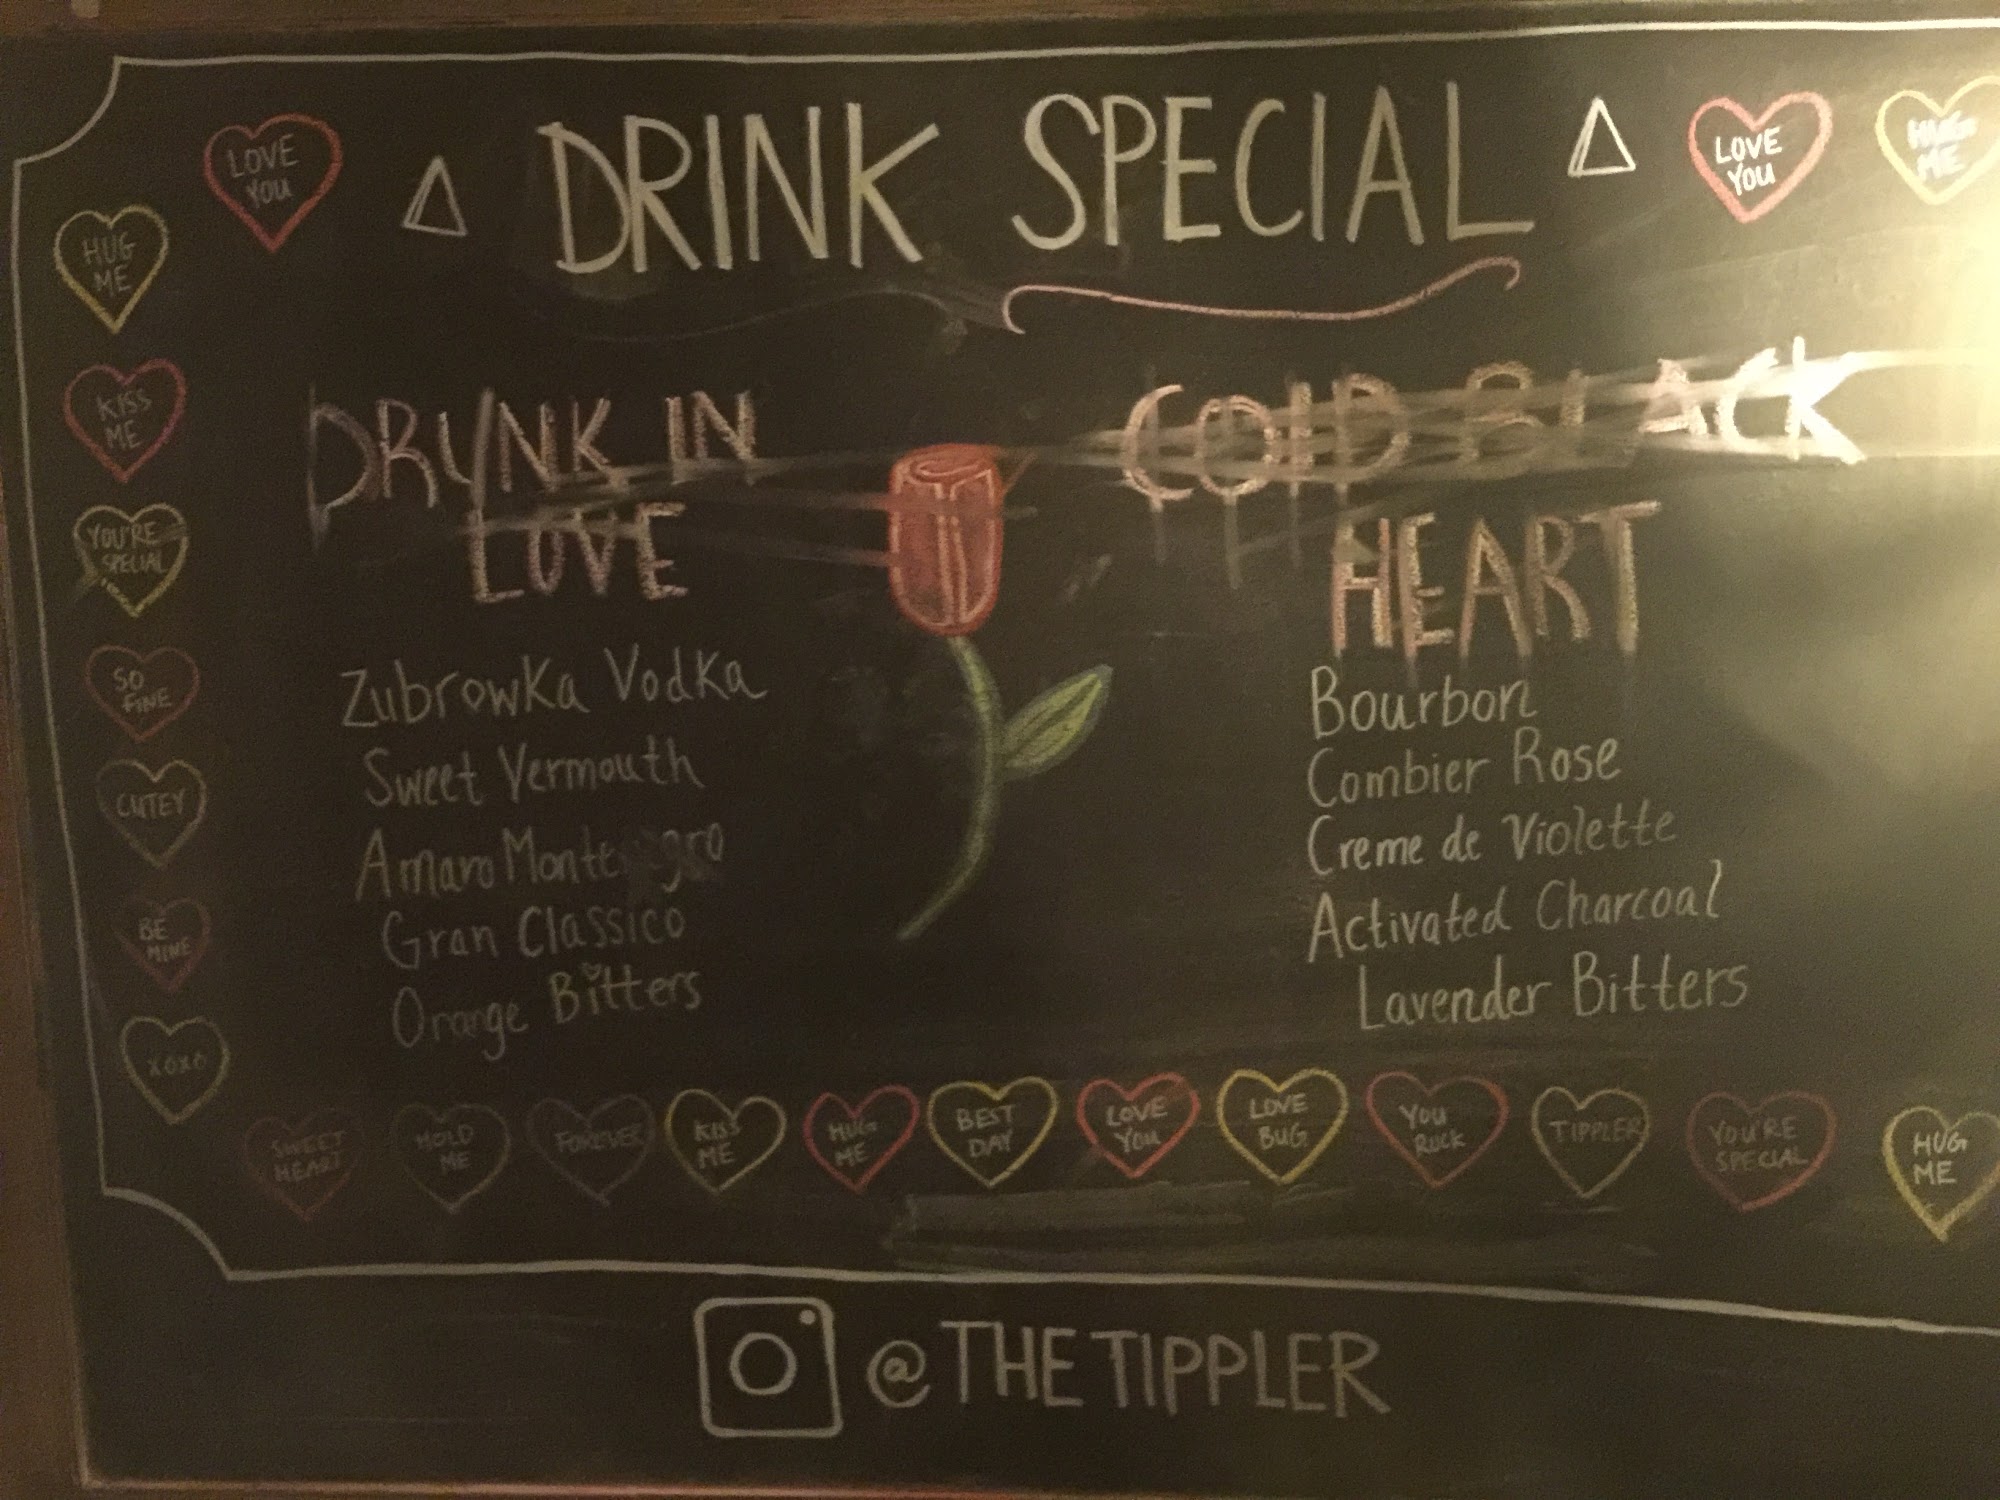 DRINK SPECIAL
LOVE
YOU
LOVE
YOU
HUG
ME
HUG
ME
KISS
ME
YOU'RE
SPECIAL
SO
FINE
CUTEY
BE
MINE
XOXO
DRUNK IN
LOVE
Zubrowka Vodka
Sweet Vermouth
Amaro Montenegro
Gran Classico
Orange Bitters
COLD BLACK
HEART
Bourbon
Combier Rose
Creme de Violette
Activated Charcoal
Lavender Bitters
SWEET
HEART
HOLD
ME
FOREVER
KISS
ME
HUG
ME
BEST
DAY
LOVE
YOU
LOVE
BUG
YOU
RUCK
TIPPLER
YOU'RE
SPECIAL
HUG
ME
@THETIPPLER